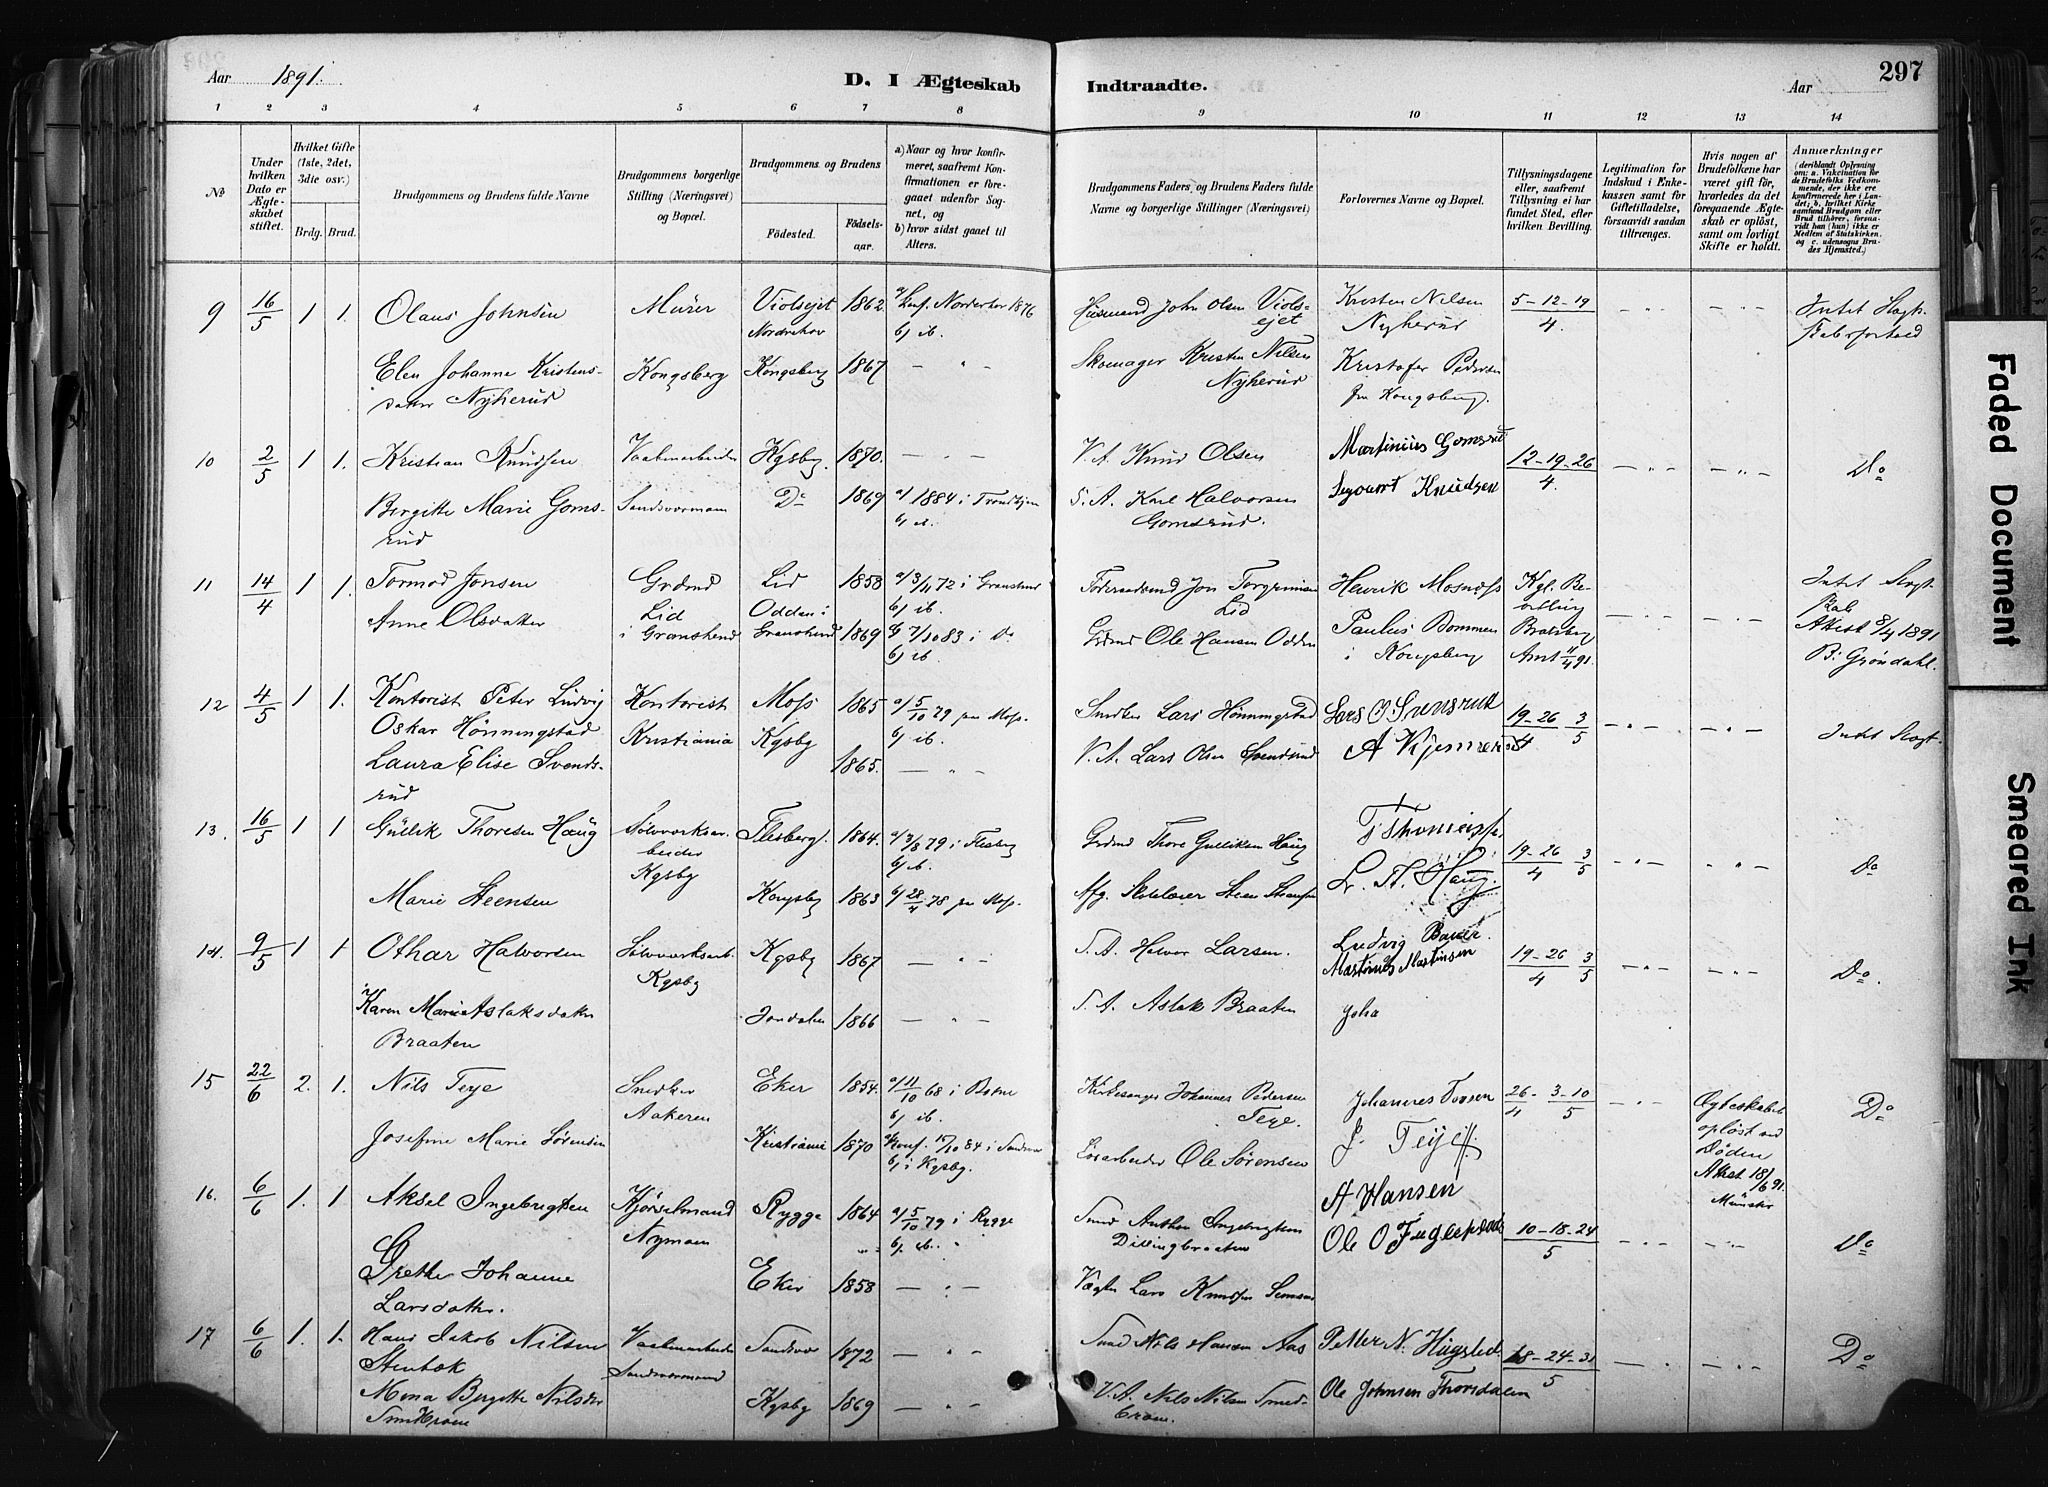 Aar 1891. D. I Ægteskab Indtraadte. Aar 297
1 2 3 4 5 6 7 8 9 10 11 12 13 14
No
Under hvilken Dato er Ægteskabet stiftet.
Hvilket Gifte (1ste, 2det, 3die osv.)
Brdg. Brud.
Brudgommens og Brudens fulde Navne
Brudgommens borgerlige Stilling (Næringsvei) og Bopæl.
Brudgommens og Brudens
Fødested. Fødselsaar.
a) Naar og hvor konfirmeret, saafremt Konfirmationen er foregaaet udenfor Sognet, og
b) hvor sidst gaaet til Alters.
Brudgommens Faders og Brudens Faders fulde Navne og borgerlige Stillinger (Næringsvei)
Forlovernes Navne og Bopæl.
Tillysningsdagene eller, saafremt Tillysning ei har fundet Sted, efter hvilken Bevilling.
Legitimation for Indskud i Enkekassen samt for Giftetilladelse, forsaavidt saadan tiltrænges.
Hvis nogen af Brudefolkene har været gift før, hvorledes da det foregaaende Ægteskab er opløst, samt om lovligt Skifte er holdt.
Anmærkninger (deriblandt Oplysning om: a. Vaksination for de Brudefolks Vedkommende, der ikke ere konfirmerede her i Landet; b. hvilket Kirkesamfund Brudgom eller Brud tilhører, forsaavidt han (hun) ikke er Medlem af Statskirken, og c. udensogns Brudes Hjemsted.
9 16/5 1 1. Olaus Johnsen Murer Violsejet Nordrehov 1862 a) Konf. Norderhov 1876 b) ib. Husmand John Olsen Violsejet Kristen Nilsen Nyherud 5-12-19/4. Intet Slagtskabsforhold
Elen Johanne Kristensdatter Nyherud Kongsberg Kongsberg 1867 Skomager Kristen Nilsen Nyherud Kristofer Pedersen fra Kongsberg.
10 2/5 1 1. Kristian Knudsen Vaabenarbeider Kgsbg. 1870. V. A. Knud Olsen Martinius Gomsrud 12-19-26/4. Do
Bergitte Marie Gomsrud Sandsværmoen Do 1869 a) 1884 i Trondhjem b) ib. S. A. Karl Halvorsen Gomsrud. Knudsen
11 14/4 1 1. Tormod Jonsen Grdmd Lid 1858 a) 3/11 72 i Gransherd b) ib. Jon Torgrimsen Lid Henrik Mosnæss Kgl. Bevilling Intet Slagtskab
Anne Olsdatter Lid i Gransherd Odden i Gransherd 1869 a) 7/10 83 i Do b) ib. Grdmd Ole Hansen Odden Paulus Bommen i Kongsberg Bratsberg Amt 11/4 91. Attest 8/4 1891 B. Grøndahl.
12 4/5 1 1. Kontorist Peter Ludvig Oskar Hønningstad Kontorist Kristiania Moss 1865 a) 5/10 79 paa Moss. b) ib. Snedker Lars Hønningstad Lars O Svensrud 19-26/4 3/5 Intet Slagt.
Laura Elise Svendsrud Kgsbg 1865. V. A. Lars Olsen Svendsrud
13. 16/5 1 1 Gullik Thoresen Haug Sølvverksarbeider Kgsbg Flesberg 1864. a) 3/8 79 i Flesberg b) ib. Grdmd Thore Gulliksen Haug 19-26/4 3/5 Do
Marie Steensen Kongsbg 1863 b) 28/4 78 paa Moss. L. Th. Haug.
14. 9/5 1 1 Othar Halvorsen Sølvverksarb. Kgsbg Kgsbg 1867 S. A. Halvor Larsen. Ludvig Bauer. Martinus Martinsen 19-26/4 3/5 Do.
Karen Marie Aslaksdatter Braaten Jondalen 1866 S. A. Aslak Braaten Joha
15 22/6 2. 1. Nils Teye Snedker Aakeren Eker 1854. a) 11/10 68 i b) ib. Kirkesanger Johannes Pedersen Teye. Johannes 26/4-3-10/5 Ægteskabet opløst ved Døden Attest 18/6 91. Münster Do
Josefine Marie Sørensen Kristiania 1870 Konf. 15/10 84 i Sandsvær b) i Kgsbg. Løsarbeider Ole Sørensen J. Teije
16. 6/6 1. 1 Aksel Ingebrigtsen Kjørselsmand Nymoen Rygge 1864 a) 5/10 79 i Rygge b) ib. Smed Anthon Ingebrigtsen Dillingbraaten A Hansen Ole O Fuglesteds 10-18-24/5 Do
Grethe Johanne Larsdatter. Eker 1858 Vægter Lars Knudsen
17 6/6 1. 1. Hans Jakob Nilsen Stenbæk Vaabenarbeider Sandsværmoen Sandsvær 1872 Smed Nils Hansen Aas Petter N. Hugsted. 18-24-31/5 Do
Mona Birgitte Nilsdtr Smedkroen Kgsbg 1869 V. A. Nils Nilsen Smedkroen. Ole Johnsen Thorsdalen
Faded Document
Smeared Ink